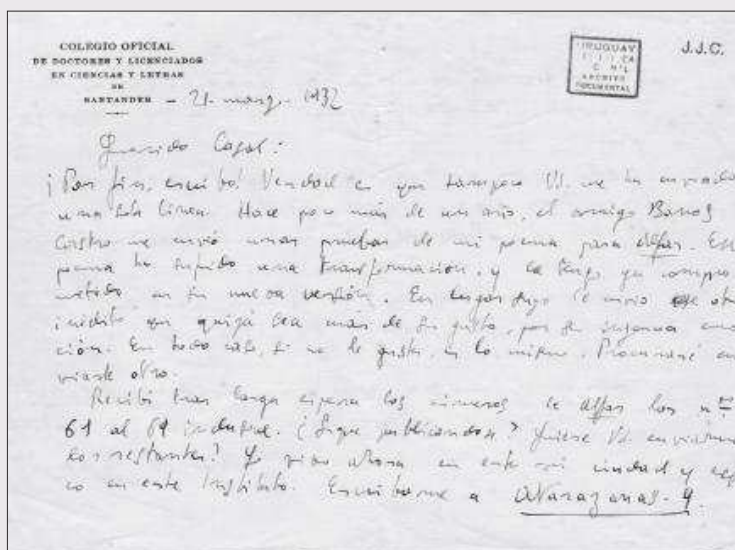 COLEGIO OFICIAL
DE DOCTORES Y LICENCIADOS
EN CIENCIAS Y LETRAS
DE
SANTANDER
- 21 - marzo - 1932
URUGUAY
ARCHIVO
DOCUMENTAL
J.J.C.
Querido Casal:
¡Por fin, escribo! Verdad es que tampoco Vd. me ha enviado
una sola línea. Hace poco más de un año, el amigo Barros
Castro me envió unas pruebas de mi poema para Alfar. Ese
poema ha sufrido una transformación, y lo tengo ya compro
metido en su nueva versión. En lugar suyo le envío otro
inédito que quizá sea más de su gusto, por su ingenua emo
ción. En todo caso, si no le gusta, es lo mismo. Procuraré en
viarle otro.
Recibí tras larga espera los números de Alfar los nos
61 al 69 inclusive. ¿Sigue publicándose? Quiere Vd. enviarme
los restantes? Yo vivo ahora en esta mi ciudad y
co en este Instituto. Escríbame a Atarazanas - 9.